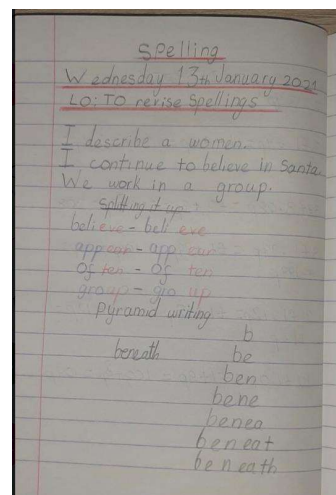 Spelling
Wednesday 13th January 2021
LO: TO revise Spellings
I describe a women.
I continue to believe in Santa.
We work in a group.
Splitting it up
believe - beli eve
appear - app ear
Often - Of ten
group - gro up
Pyramid writing
b
beneath be
ben
bene
benea
beneat
beneath